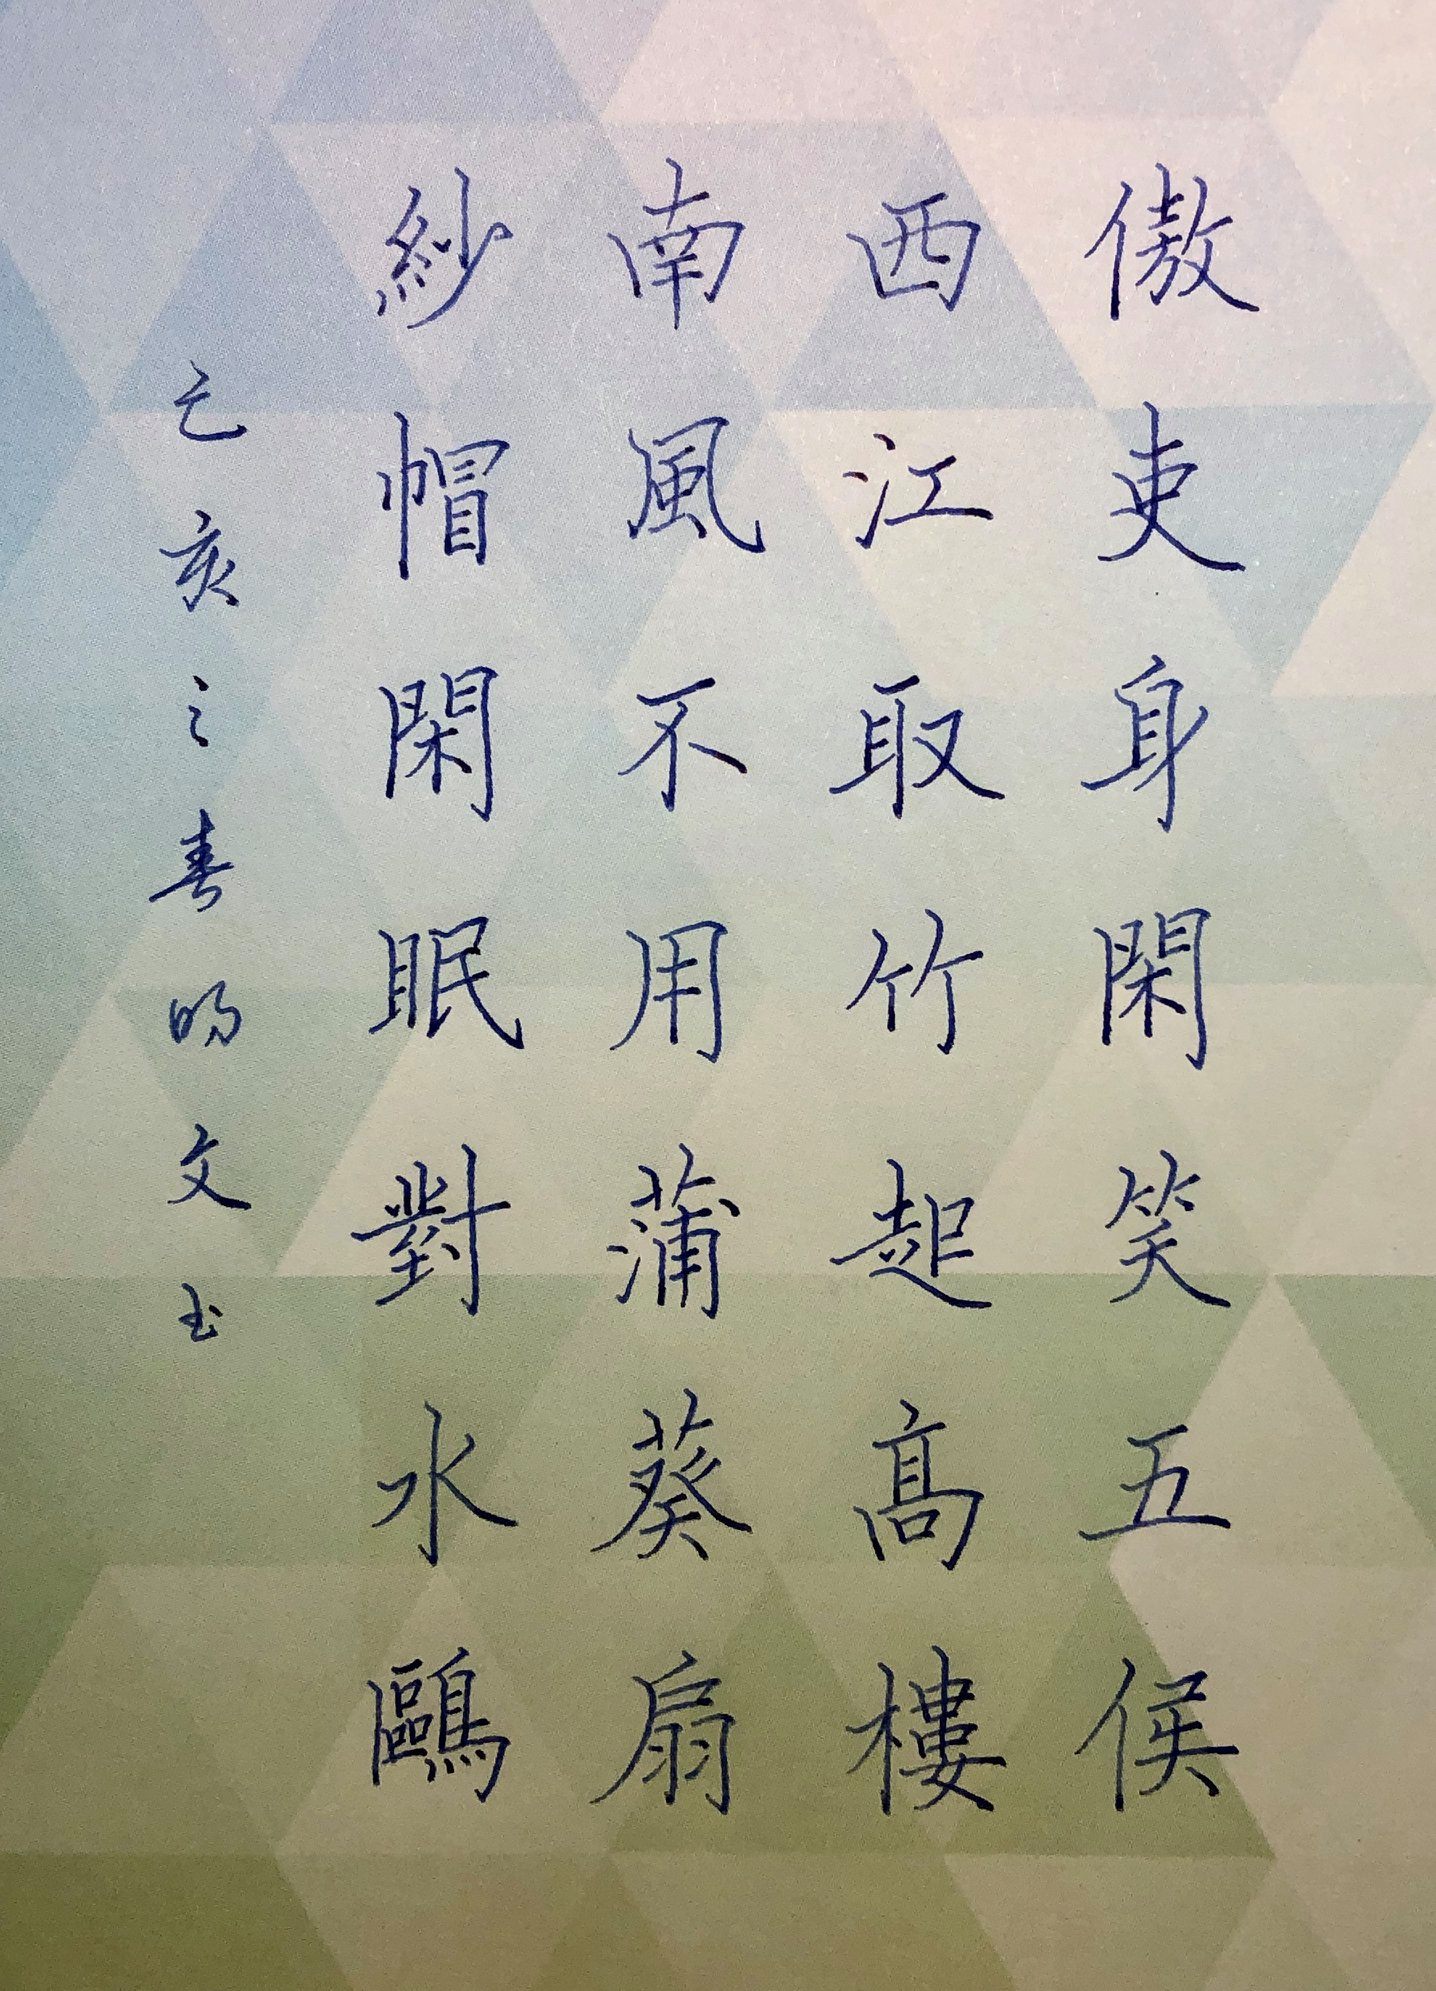 傲吏身閑笑五侯
西江取竹起高樓
南風不用蒲葵扇
紗帽閑眠對水鷗
己亥之春明文书